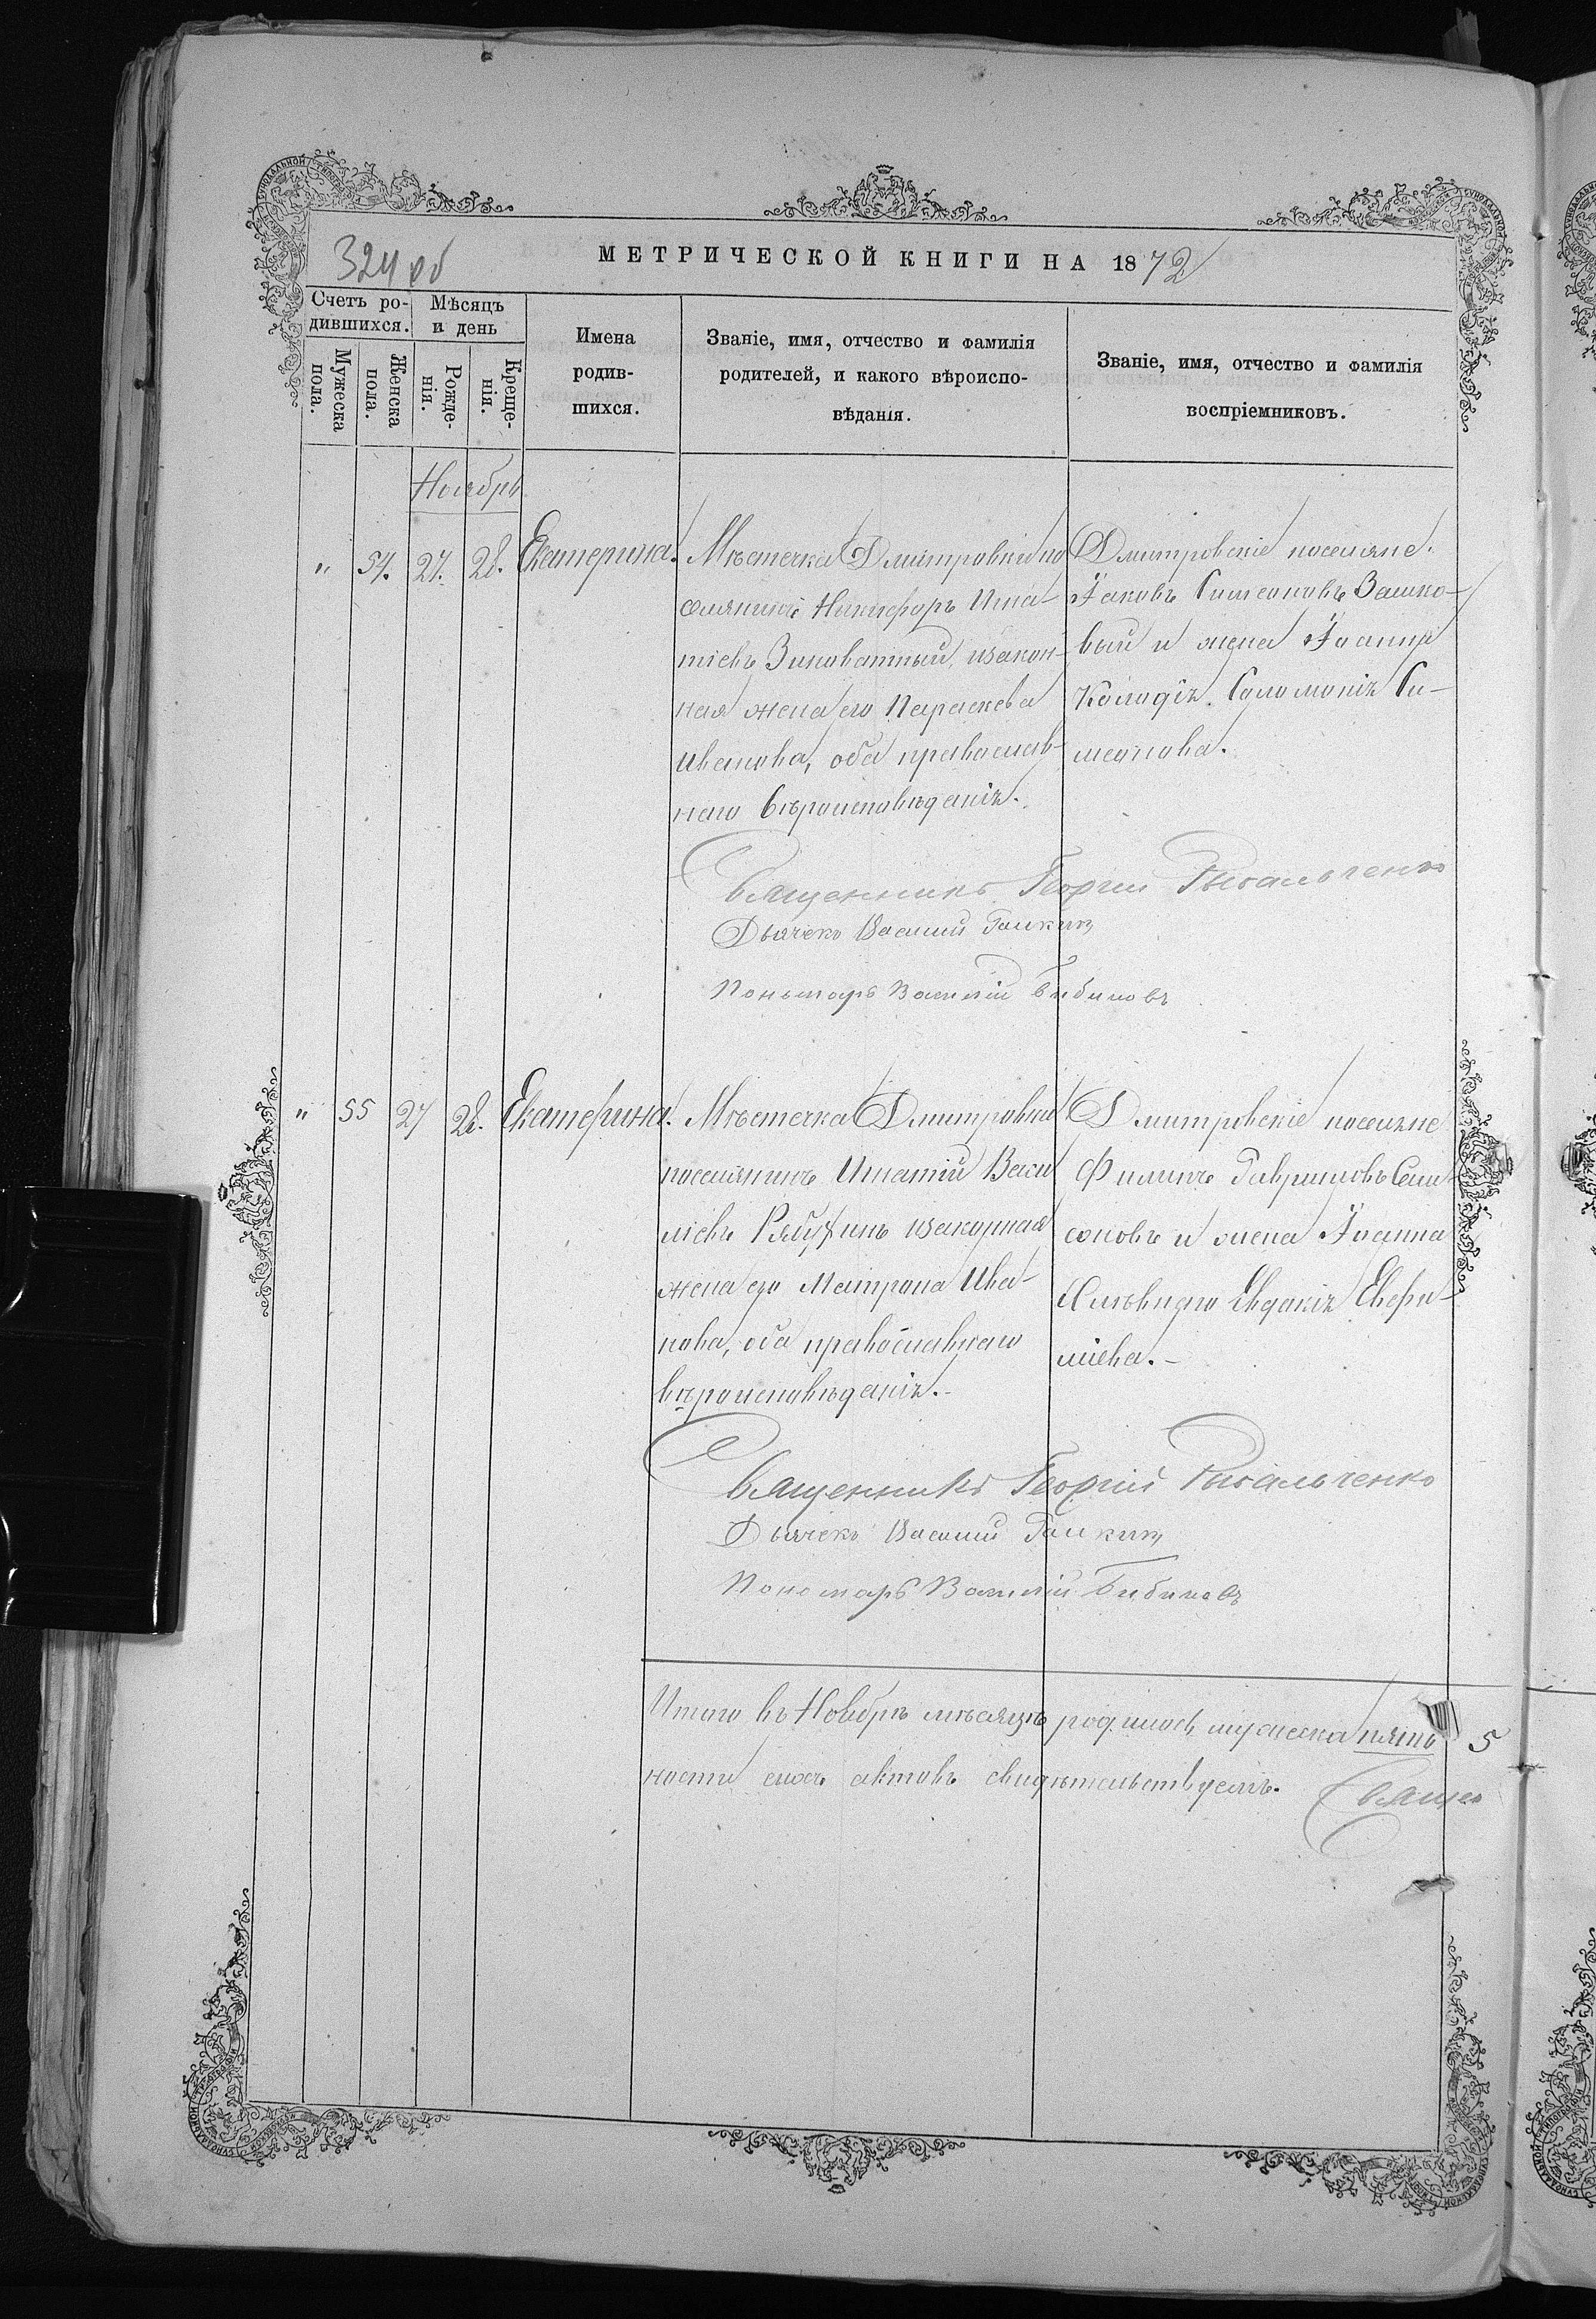 324 об
МЕТРИЧЕСКОЙ КНИГИ НА 1872
Счетъ ро-
дившихся.
Мѣсяцъ
и день
Мужеска
пола.
Женска
пола.
Рожде-
нія.
Креще-
нія.
Имена
родив-
шихся.
Званіе, имя, отчество и фамилія
родителей, и какого вѣроиспо-
вѣданія.
Званіе, имя, отчество и фамилія
воспріемниковъ.
Ноябрь
" 54. 27. 28. Екатерина.
Мѣстечка Дмитровки по
селянинъ Никифоръ Игна-
тіевъ Виноватный, и закон-
ная жена его Параскева
Иванова, оба православ-
наго вѣроисповѣданія.
Дмитровскіе поселяне.
Іаковъ Симеоновъ Зашко-
вый и жена Іоанна
Колодія Соломонія Си-
меонова.
Священникъ Георгій Рыбальченко
Дьячекъ Василій
Пономарь Василій Бибиковъ
" 55 27 28. Екатерина.
Мѣстечка Дмитровки
поселянинъ Игнатій Васи
ліевъ и законная
жена его Матрона Ива-
нова, оба православнаго
вѣроисповѣданія.-
Дмитровскіе поселяне
Филипъ Гавриловъ Сам-
соновъ и жена Іоанна
Евдокія Евфи-
міева.-
Священникъ Георгій Рыбальченко
Дьячекъ Василій
Пономарь Василій Бибиковъ
Итого въ Ноябрѣ мѣсяцѣ родилось мужеска пять 5
ности сихъ актовъ свидѣтельствуемъ. Священ